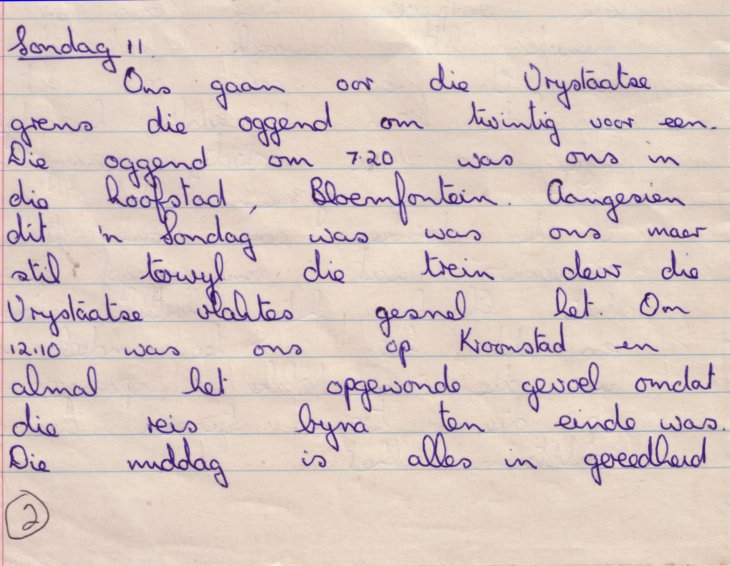 Sondag 11.
Ons gaan oor die Vrystaatse
grens die oggend om twintig voor een.
Die oggend om 7.20 was ons in
die hoofstad, Bloemfontein. Aangesien
dit 'n Sondag was was ons maar
stil terwyl die trein deur die
Vrystaatse vlaktes gesnel het. Om
12.10 was ons op Kroonstad en
almal het opgewonde gevoel omdat
die reis byna ten einde was.
Die middag is alles in gereedheid
2